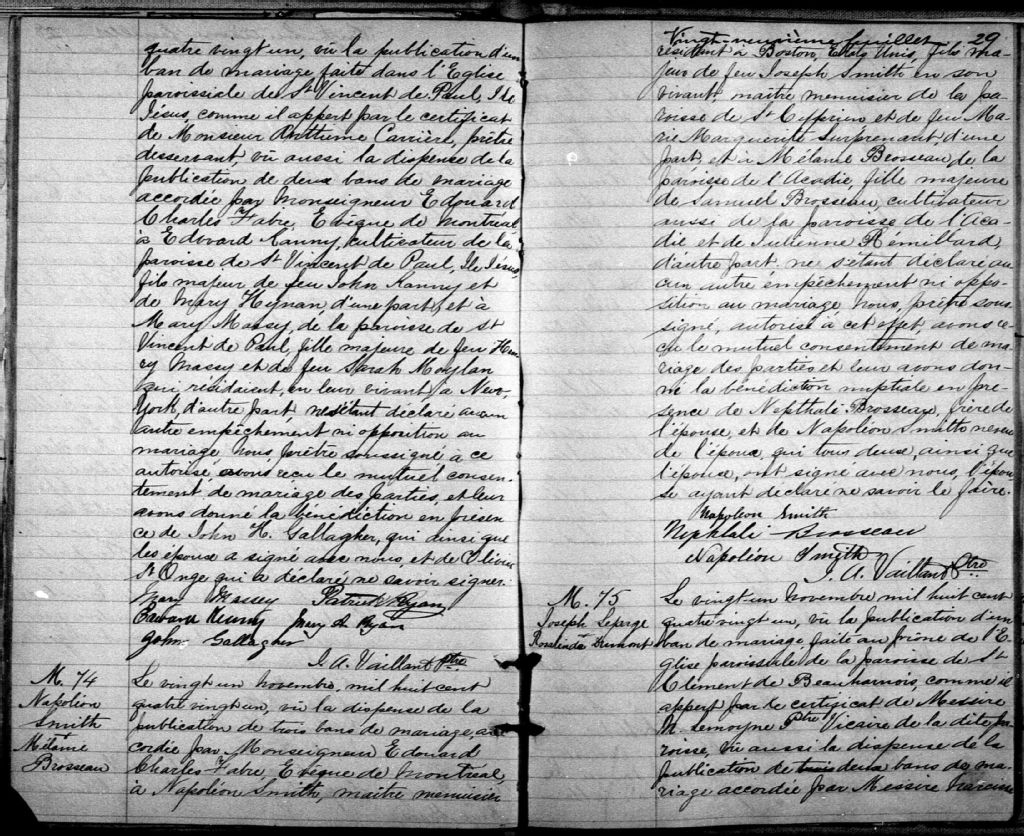 quatre vingt un, vû la publication d'un
ban de mariage, faite dans l'Eglise
paroissiale de St Vincent de Paul, Ile
Jésus, comme il appert par le certificat
de Monsieur Carrière, prêtre
desservant, vû aussi la dispense de la
publication de deux bans de mariage
accordée par Monseigneur Edouard
Charles Fabre, Evêque de Montréal
à Edward Kanny, cultivateur de la
paroisse de St Vincent de Paul, Ile Jésus,
fils majeur de feu John Kanny et
de Mary Hynan d'une part, et à
Mary Massey, de la paroisse de St
Vincent de Paul, fille majeure de feu Hen-
ry Massy et de feu Sarah Moylan
qui résidaient, en leur vivant, à New-
York, d'autre part, ne s'étant déclaré aucun
autre empêchement ni opposition au
mariage, nous, prêtre soussigné à ce
autorisé, avons reçu le mutuel consen-
tement de mariage des parties, et leur
avons donné la bénédiction en présen-
ce de John H. Gallagher, qui ainsi que
les époux a signé avec nous, et de Olivier
St Onge qui a déclaré ne savoir signer.
Mary Massey Patrick Ryan
Edward Kenny Mary A Ryan
John Gallagher
J. A. Vaillant Ptre
M. 74
Napoléon
Smith
&
Mélanie
Brosseau
Le vingt un novembre, mil huit cent
quatre vingt un, vû la dispense de la
publication de trois bans de mariage, ac-
cordée par Monseigneur Edouard
Charles Fabre, Evêque de Montréal,
à Napoléon Smith, maître menuisier
Vingt-neuvième feuillet 29
résidant à Boston, Etats Unis, fils ma-
jeur de feu Joseph Smith en son
vivant, maître menuisier de la pa-
roisse de St Cyprien et de feu Ma-
rie Marguerite Surprenant, d'une
part, et à Mélanie Brosseau, de la
paroisse de l'Acadie, fille majeure
de Samuel Brosseau, cultivateur
aussi de la paroisse de l'Aca-
die et de Julienne Rémillard,
d'autre part. ne s'étant déclaré au
cun autre empêchement ni oppo-
sition au mariage, nous, prêtre sous-
signé, autorisé à cet effet avons re-
çu le mutuel consentement de ma-
riage des parties et leur avons don-
né la bénédiction nuptiale en pré-
sence de Nepthalé Brosseau, frère de
l'épouse, et de Napoléon Smith neveu
de l'époux, qui tous deux, ainsi que
l'époux, ont signé avec nous, l'épou-
se ayant déclaré ne savoir le faire.
Napoleon Smith
Nephtali Brosseau
Napoléon Smith
J. A. Vaillant Ptre
M. 75
Joseph Leparge
&
Rosalinda Dumont
Le vingt-un novembre mil huit cent
quatre vingt un, vû la publication d'un
ban de mariage faite au prône de l'E-
glise paroissiale de la paroisse de St
Clément de Beauharnois, comme il
appert par le certificat de Messire
M. Lemoyne Ptre Vicaire de la dite pa-
roisse, Vû aussi la dispense de la
publication de trois deux bans de ma-
riage accordée par Messire Narcisse